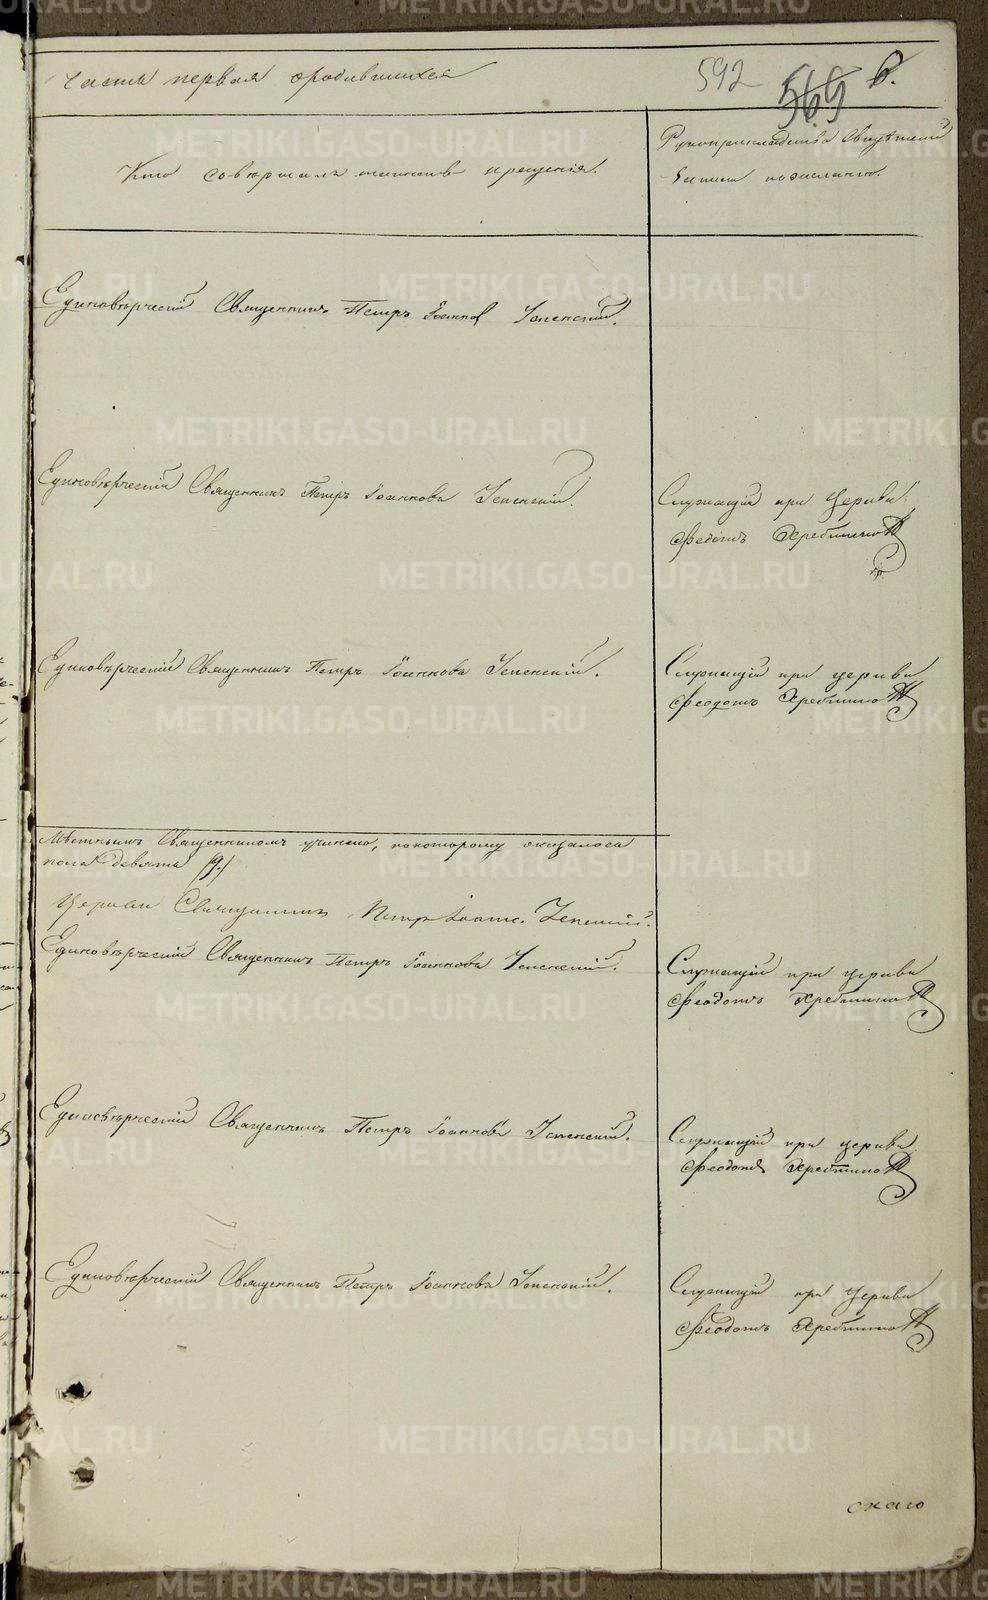 Часть первая о родившихся
592 569 6.
Кто совершалъ таинство крещенія.
Рукоприкладство Свидѣтелей
записи по желанію.
Единовѣрческій Священникъ Петръ Іоанновъ Успенскій.
Единовѣрческій Священникъ Петръ Іоанновъ Успенскій.
Служащій при церкви
Феодотъ
Единовѣрческій Священникъ Петръ Іоанновъ Успенскій.
Служащій при церкви
Феодотъ
Мѣстнымъ Священникомъ учинено, по которому оказалось
пола девять (9.)
Церкви Священникъ Петръ Іоанн. Успенскій.
Единовѣрческій Священникъ Петръ Іоанновъ Успенскій.
Служащій при церкви
Феодотъ
Единовѣрческій Священникъ Петръ Іоанновъ Успенскій.
Служащій при церкви
Феодотъ
Единовѣрческій Священникъ Петръ Іоанновъ Успенскій.
Служащій при церкви
Феодотъ
скаго
METRIKI.GASO-URAL.RU